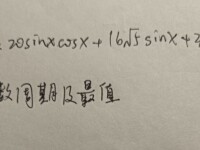 = 20sinxcosx + 16√5 sinx +
数周期及最值